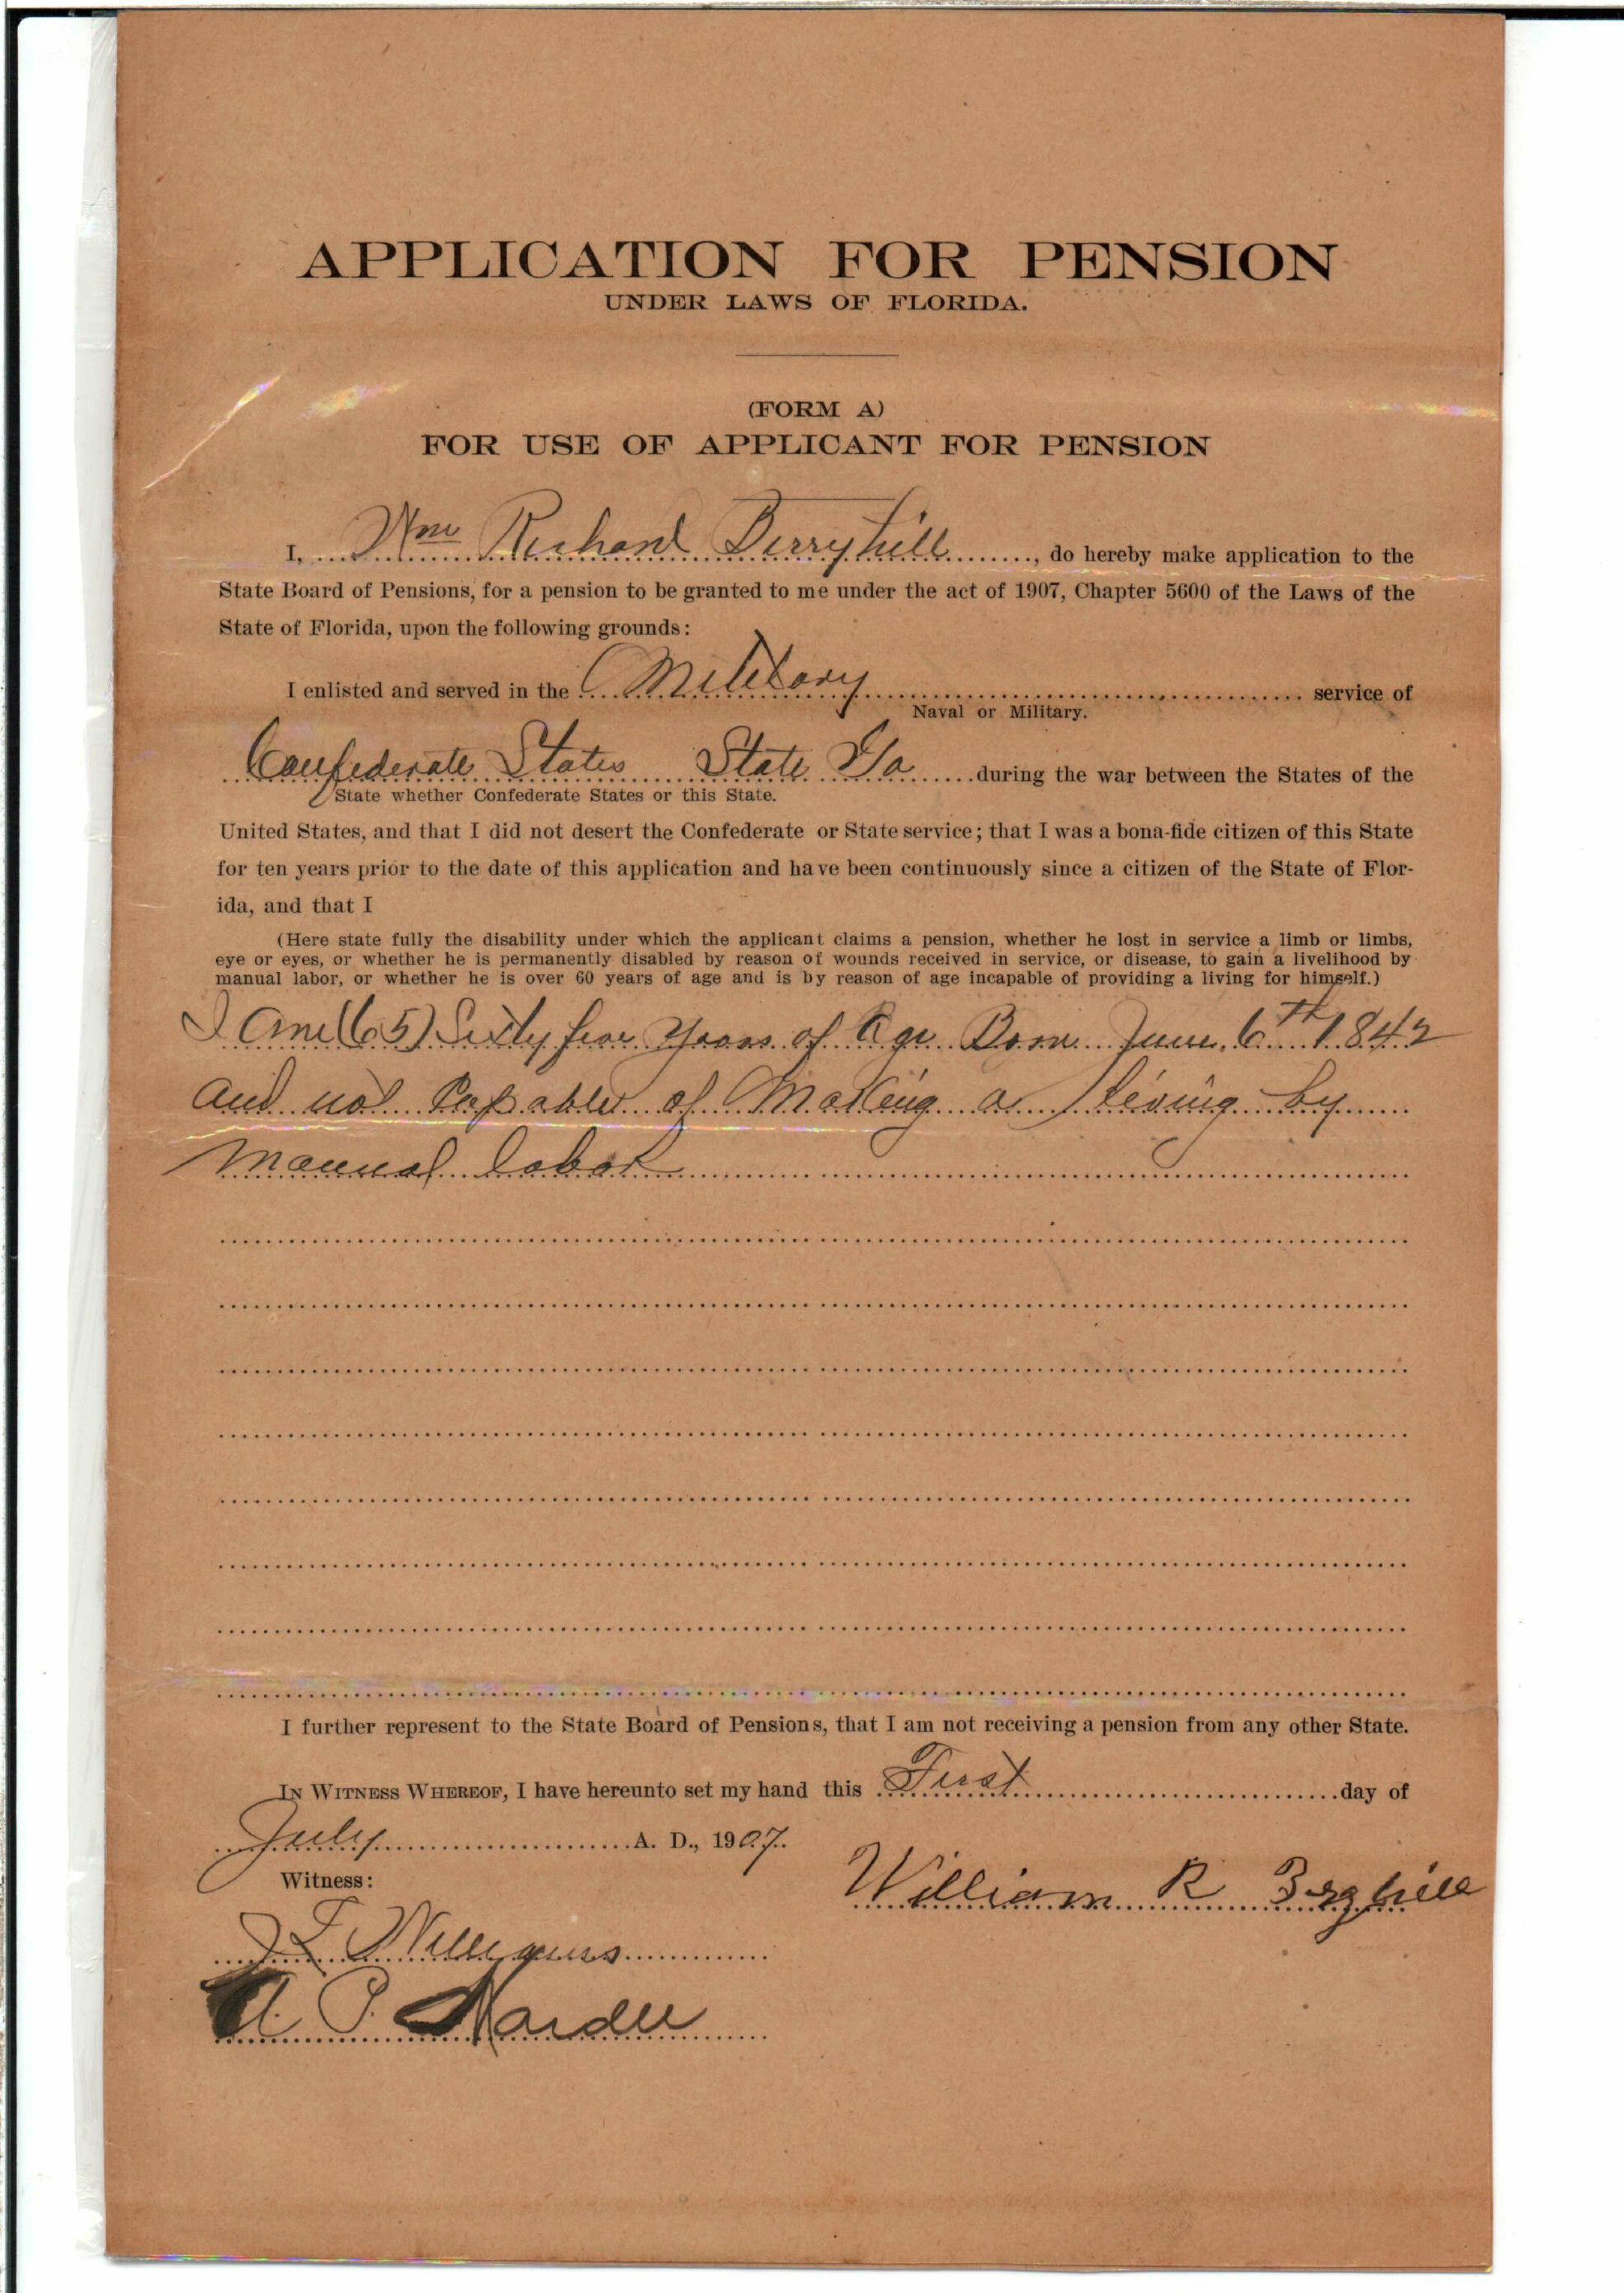 APPLICATION FOR PENSION
UNDER LAWS OF FLORIDA.
(FORM A)
FOR USE OF APPLICANT FOR PENSION
I, Wm Richard Berryhill, do hereby make application to the
State Board of Pensions, for a pension to be granted to me under the act of 1907, Chapter 5600 of the Laws of the
State of Florida, upon the following grounds:
I enlisted and served in the Military service of
Naval or Military.
Confederate States State Ga during the war between the States of the
State whether Confederate States or this State.
United States, and that I did not desert the Confederate or State service; that I was a bona-fide citizen of this State
for ten years prior to the date of this application and have been continuously since a citizen of the State of Flor-
ida, and that I
(Here state fully the disability under which the applicant claims a pension, whether he lost in service a limb or limbs,
eye or eyes, or whether he is permanently disabled by reason of wounds received in service, or disease, to gain a livelihood by
manual labor, or whether he is over 60 years of age and is by reason of age incapable of providing a living for himself.)
I Am (65) Sixty five Years of Age Born June 6th 1842
and not Capable of Making a living by
Manual labor
I further represent to the State Board of Pensions, that I am not receiving a pension from any other State.
IN WITNESS WHEREOF, I have hereunto set my hand this First day of
July A. D., 1907.
Witness:
William R
J L Williams
P. Hardee